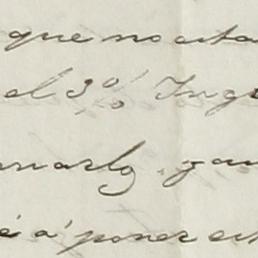 que no esta
el 3% Ing
narlo, gan
é á poner es